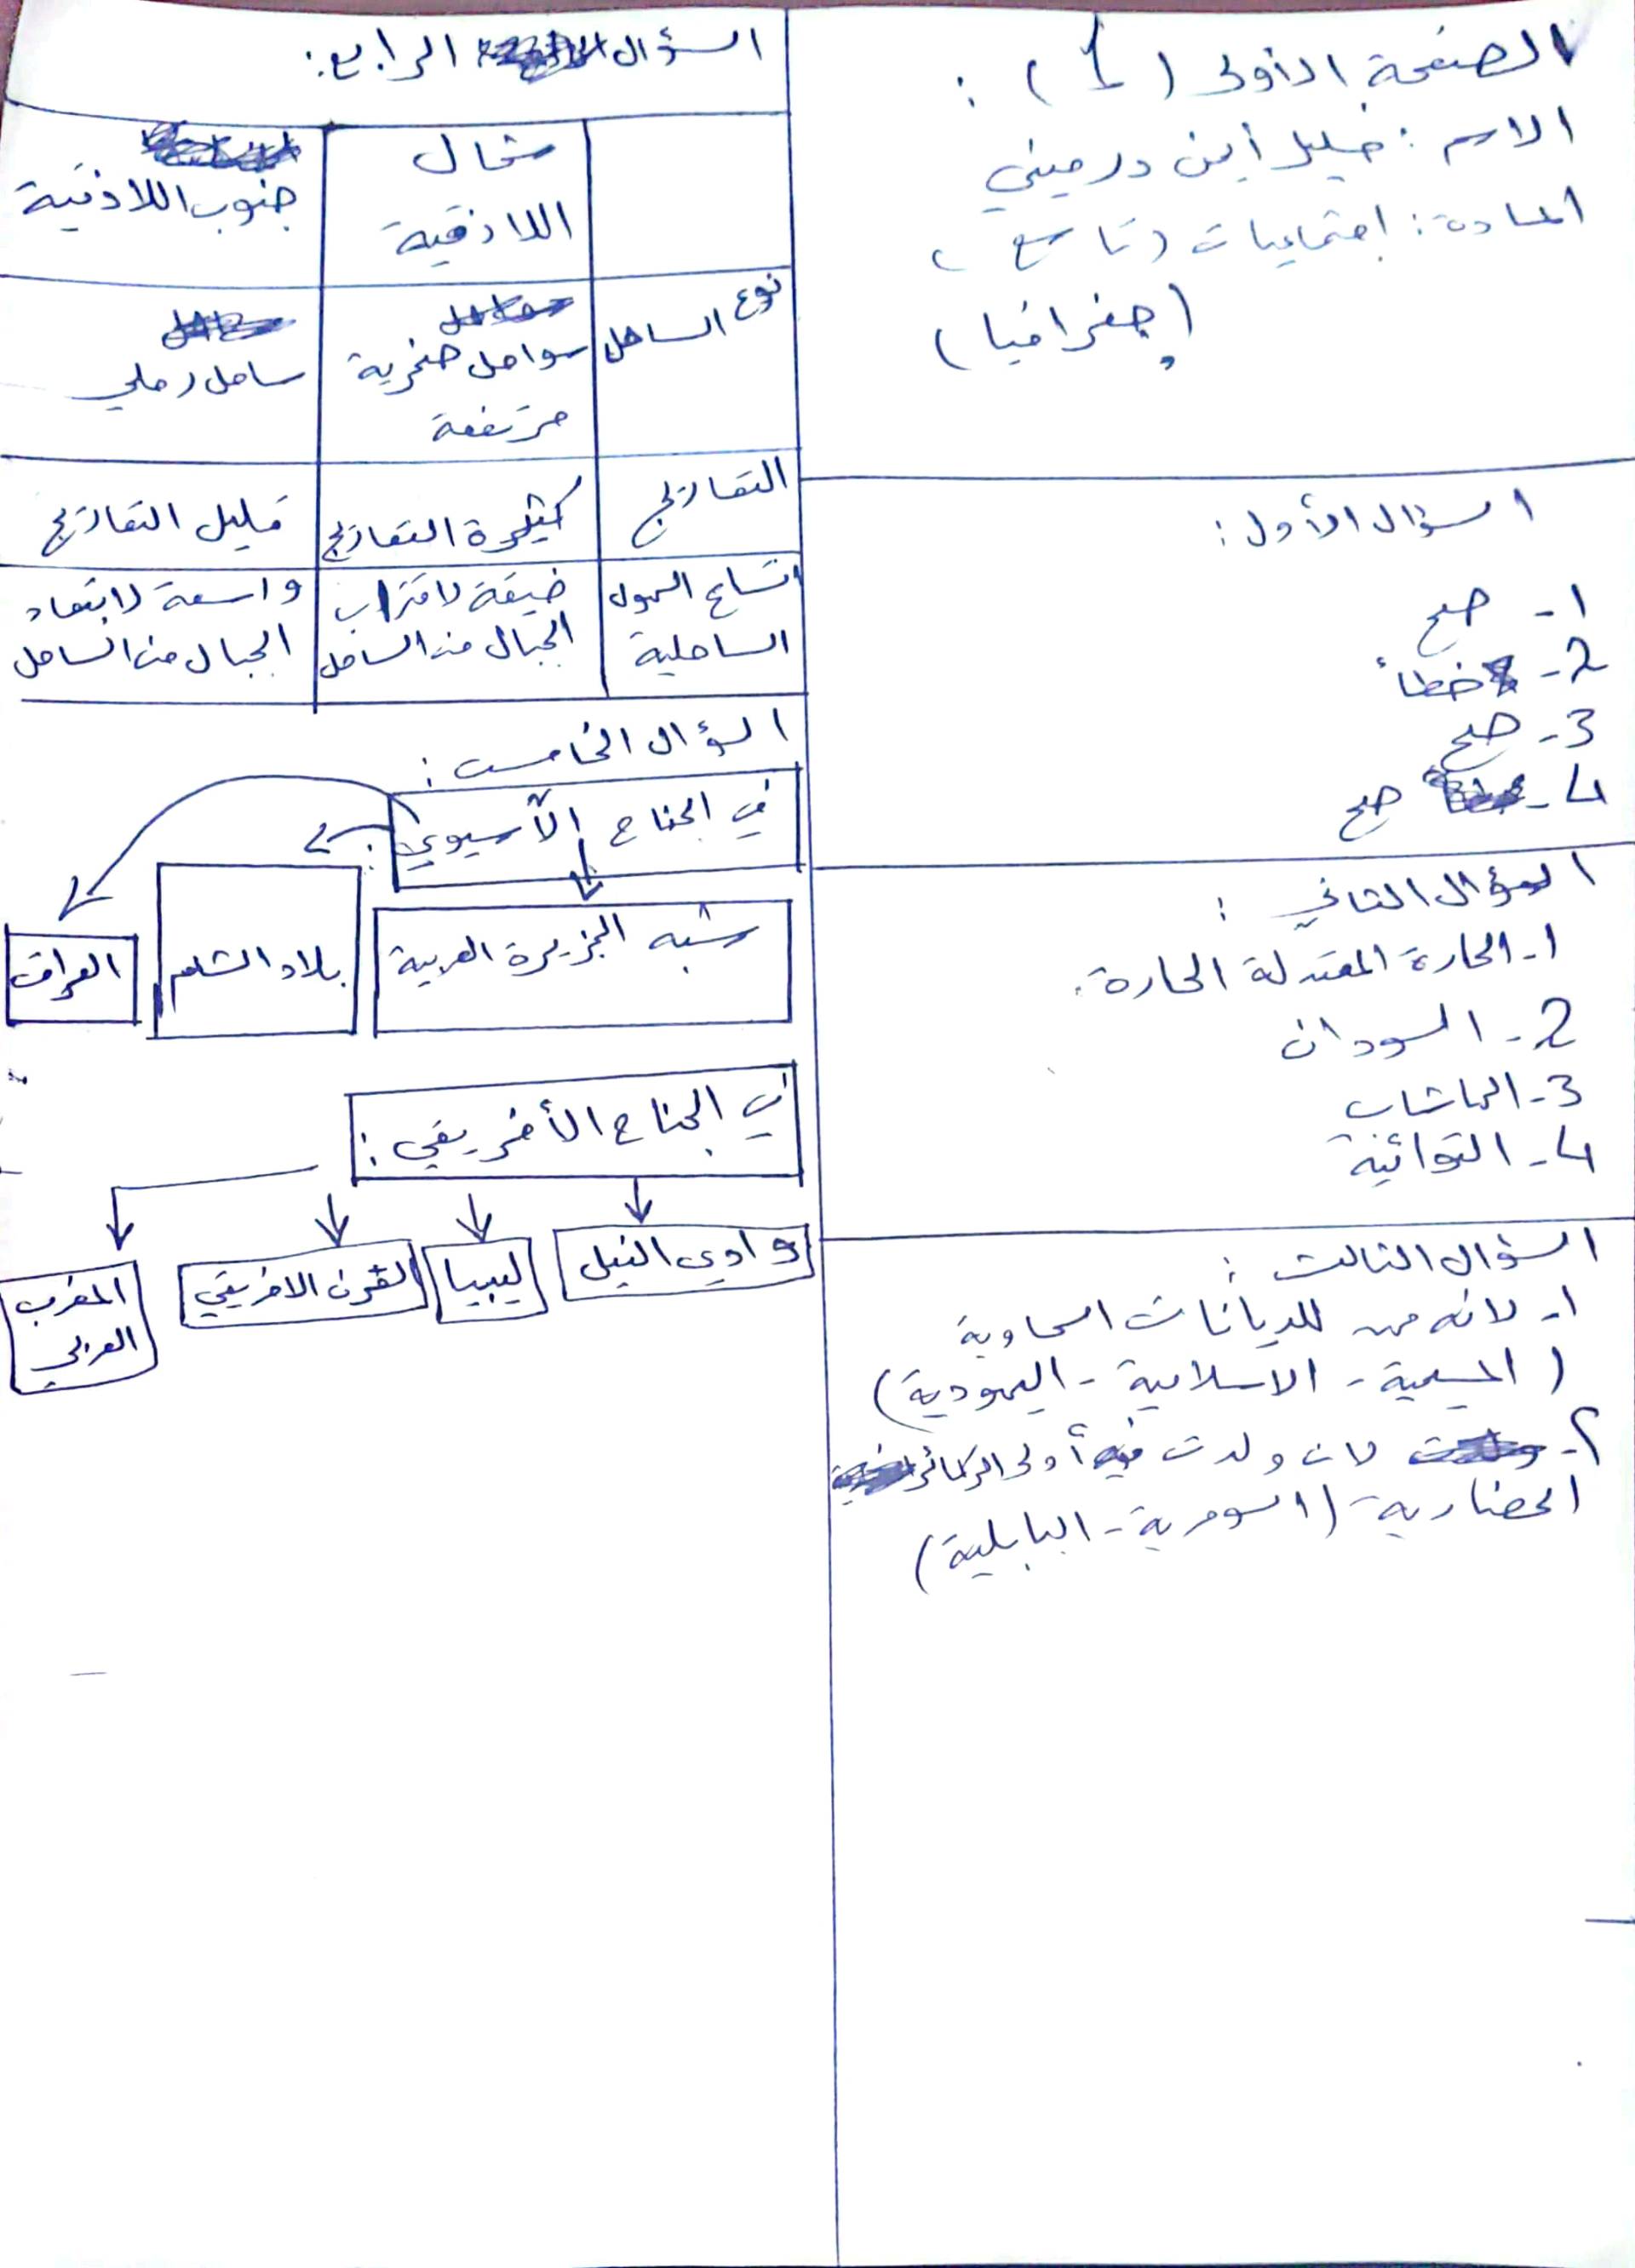 الصفحة الأولى (1) :
الاسم : خليل أيمن درميني
المادة : اجتماعيات (تاسع)
(جغرافيا)
السؤال الأول :
1- صح
2- خطأ
3- صح
4- صح
السؤال الثاني :
1- الحارة المعتدلة الحارة.
2- السودان
3- الهاشاب
4- التوائية
السؤال الثالث :
1- لانه مهد للديانات السماوية
(المسيحية - الاسلامية - اليهودية)
2- لان ولدت فيه أولى الركائز
الحضارية (السومرية - البابلية)
السؤال الرابع :
شمال اللاذقية
جنوب اللاذقية
نوع الساحل
سواحل صخرية مرتفعة
ساحل رملي
التعاريج
كثيرة التعاريج
قليل التعاريج
اتساع السهول الساحلية
ضيقة لاقتراب الجبال من الساحل
واسعة لابتعاد الجبال من الساحل
السؤال الخامس :
في الجناح الآسيوي :
شبه الجزيرة العربية
بلاد الشام
العراق
في الجناح الأفريقي :
وادي النيل
ليبيا
القرن الافريقي
المغرب العربي